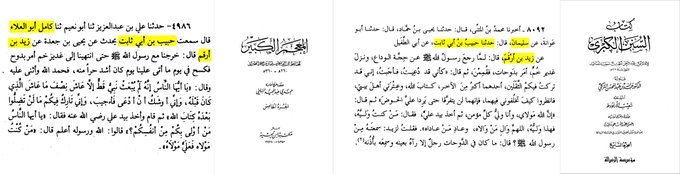 ٤٩٨٦ - حدثنا علي بن عبدالعزيز ثنا أبو نعيم ثنا كامل أبو العلاء
قال سمعت حبيب بن أبي ثابت يحدث عن يحيى بن جعدة عن زيد بن
أرقم قال : خرجنا مع رسول الله ﷺ حتى انتهينا إلى غدير خم أمر بدوح
فكسح في يوم ما أتى علينا يوم كان أشد حراً منه، فحمد الله وأثنى عليه
وقال : «يا أيها الناس إنه لم يبعث نبي قط إلا عاش نصف ما عاش الذي
كان قبله، وإني أوشك أن أدعى فأجيب، وإني تارك فيكم ما لن تضلوا
بعده كتاب الله» ثم قام وأخذ بيد علي رضي الله عنه فقال : «يا أيها الناس
من أولى بكم من أنفسكم؟» قالوا : الله ورسوله أعلم قال : «من كنت
مولاه فعلي مولاه».
المعجم الكبير
٨٠٩٢ - أخبرنا محمد بن المثنى، قال: حدثنا يحيى بن حماد، قال: حدثنا أبو
عوانة، عن سليمان، قال: حدثنا حبيب بن أبي ثابت، عن أبي الطفيل
عن زيد بن أرقم، قال: لما رجع رسول الله ﷺ عن حجة الوداع، ونزل
غدير خم، أمر بدوحات، فقممن، ثم قال: «كأني قد دعيت، فأجبت، إني قد
تركت فيكم الثقلين، أحدهما أكبر من الآخر، كتاب الله، وعترتي أهل بيتي،
فانظروا كيف تخلفوني فيهما، فإنهما لن يتفرقا حتى يردا علي الحوض» ثم قال:
«إن الله مولاي، وأنا ولي كل مؤمن، ثم أخذ بيد علي، فقال: «من كنت وليه،
فهذا وليه، اللهم وال من والاه، وعاد من عاداه». فقلت لزيد: سمعته من
رسول الله ﷺ؟ قال: ما كان في الدوحات رجل إلا رآه بعينه وسمعه بأذنه(٢)
كتاب
السنن الكبرى
مؤسسة الرسالة